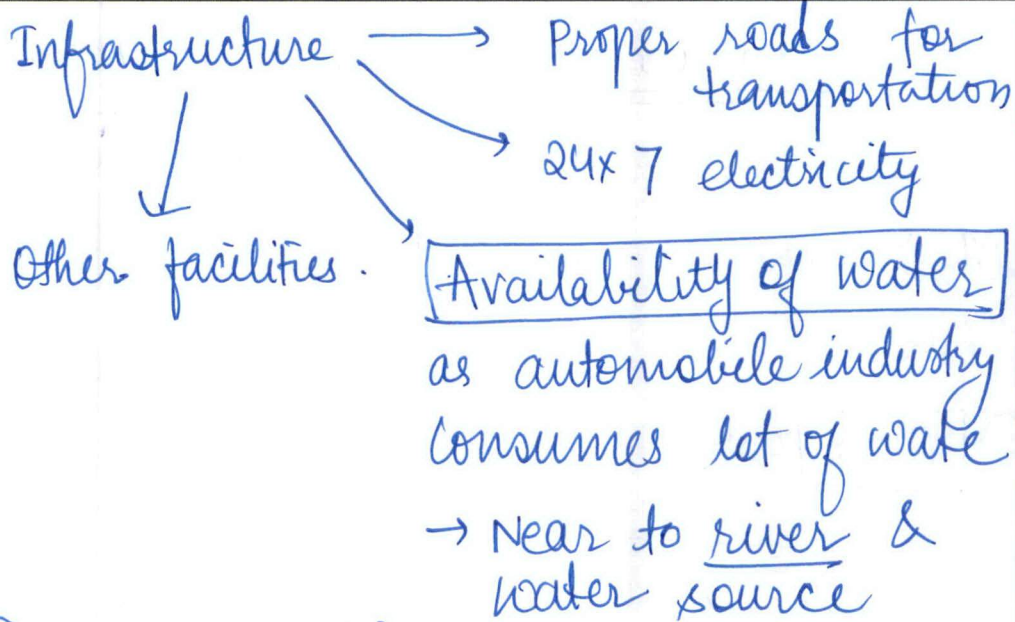 Infrastructure → Proper roads for
transportation
24x7 electricity
Other facilities.
Availability of water
as automobile industry
consumes lot of wate
→ Near to river &
water source